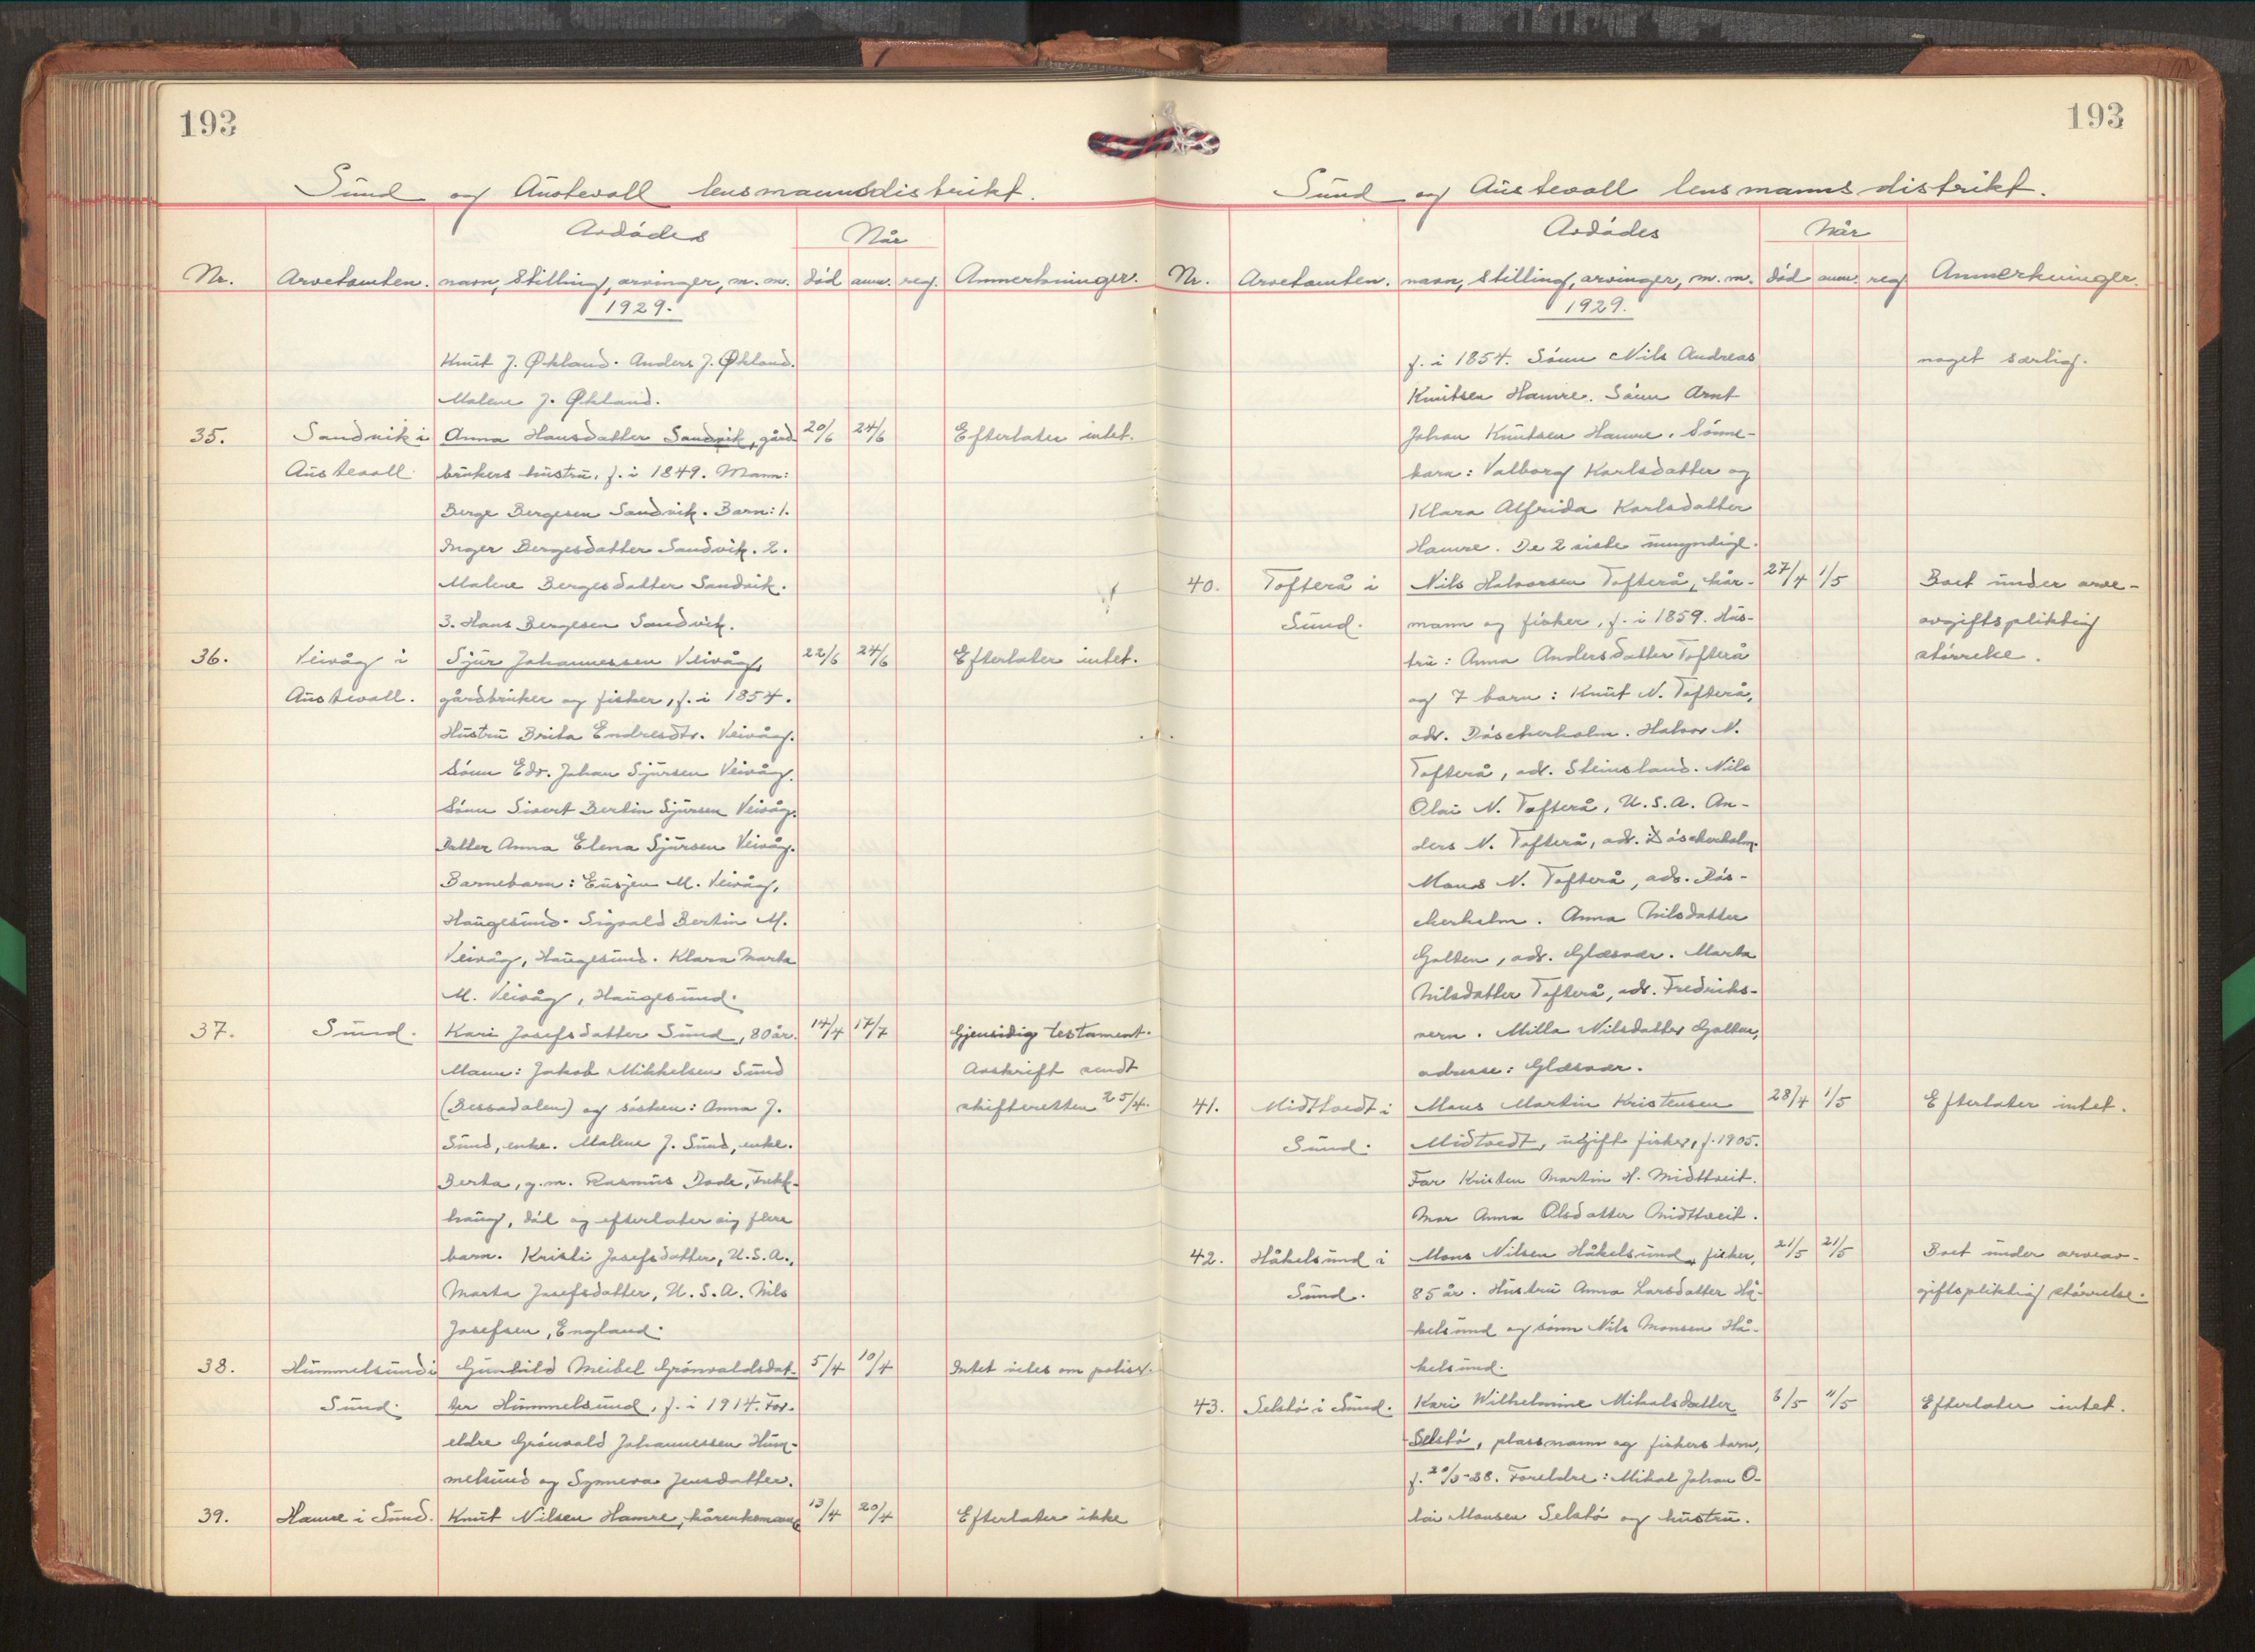 193
Sund og Austevoll lensmannsdistrikt.
Avdødes
Når
Nr. Arvetomten. navn, stilling, arvinger, m. m. død anm. reg. Anmerkninger.
1929.
Knut J. Økland. Anders J. Økland.
Malene J. Økland.
35. Sandvik i Anna Hansdatter Sandvik, gård- 20/6 24/6 Efterlater intet.
Austevoll. brukers hustru, f. i 1849. Mann:
Berge Bergesen Sandvik. Barn: 1.
Inger Bergesdatter Sandvik. 2.
Malene Bergesdatter Sandvik.
3. Hans Bergesen Sandvik.
36. Veivåg i Sjur Johannessen Veivåg, 22/6 24/6 Efterlater intet.
Austevoll. gårdbruker og fisker, f. i 1854.
Hustru Brita Endresdtr. Veivåg.
Sønn Edv. Johan Sjursen Veivåg.
Sønn Sivert Bertin Sjursen Veivåg.
Datter Anna Elena Sjursen Veivåg.
Barnebarn: Eusjen M. Veivåg,
Haugesund. Sigvald Bertin M.
Veivåg, Haugesund. Klara Marta
M. Veivåg, Haugesund.
37. Sund. Kari Josefsdatter Sund, 80 år. 14/4 17/7 Gjensidig testament.
Mann: Jakob Mikkelsen Sund Avskrift sendt
(Bessadalen) og søsken: Anna J. skifteretten 25/4.
Sund, enke. Malene J. Sund, enke.
Berta, g. m. Rasmus Dode, Trekk-
haug, død og efterlater sig flere
barn. Kristi Josefsdatter, U.S.A.,
Marta Josefsdatter, U.S.A. Nils
Josefsen, England.
38. Hummelsund i Gunhild Meibel Grønvaldsdat- 5/4 10/4 Intet vites om
Sund. ter Hummelsund, f. i 1914. For-
eldre Grønvald Johannessen Hum-
melsund og Synneva Jensdatter.
39. Hamre i Sund. Knut Nilsen Hamre, kårenkemann 13/4 20/4 Efterlater ikke
193
Sund og Austevoll lensmannsdistrikt.
Avdødes
Når
Nr. Arvetomten. navn, stilling, arvinger, m. m. død anm. reg. Anmerkninger.
1929.
f. i 1854. Sønn Nils Andreas noget særlig.
Knutsen Hamre. Sønn Arnt
Johan Knutsen Hamre. Sønne-
barn: Valborg Karlsdatter og
Klara Alfrida Karlsdatter
Hamre. De 2 siste umyndige.
40. Tofterå i Nils Halvorsen Tofterå, kår- 27/4 1/5 Boet under arve-
Sund. mann og fisker, f. i 1859. Hus- avgiftspliktig
tru: Anna Andersdatter Tofterå størrelse.
og 7 barn: Knut N. Tofterå,
adr. Bøscherholm. Halvor N.
Tofterå, adr. Steinsland. Nils
Olai N. Tofterå, U.S.A. An-
ders N. Tofterå, adr. Bøscherholm.
Mons N. Tofterå, adr. Bøs-
cherholm. Anna Nilsdatter
Golten, adr. Glæsvær. Marta
Nilsdatter Tofterå, adr. Fredriks-
vern. Milla Nilsdatter Golten,
adresse: Glæsvær.
41. Midttvedt i Mons Martin Kristensen 28/4 1/5 Efterlater intet.
Sund. Midtvedt, ugift fisker, f. 1905.
Far Kristen Martin H. Midttveit.
Mor Anna Olsdatter Midttveit.
42. Håkelsund i Mons Nilsen Håkelsund, fisker, 21/5 21/5 Boet under arveav-
Sund. 85 år. Hustru Anna Larsdatter Hå- giftspliktig størrelse.
kelsund og sønn Nils Monsen Hå-
kelsund.
43. Selstø i Sund. Kari Wilhelmine Mikalsdatter 6/5 11/5 Efterlater intet.
Selstø, plassmann og fiskers barn,
f. 20/3-28. Foreldre: Mikal Johan O-
lai Monsen Selstø og hustru.